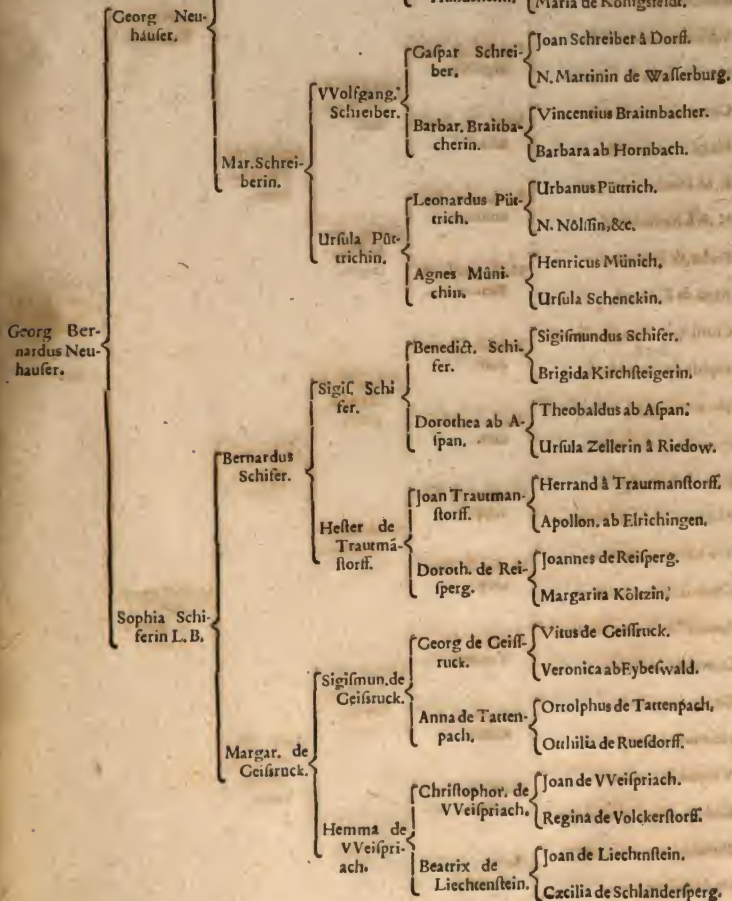 Georg Ber-
nardus Neu-
hauſer.
Georg Neu-
háuſer.
Sophia Schi-
ferin L. B.
Mar. Schrei-
berin.
Bernardus
Schifer.
Margar. de
Geiſsruck.
VVolfgang.
Schreiber.
Urſula Pűt-
trichin.
Sigiſ. Schi
fer.
Heſter de
Trautmã-
ſtorff.
Sigiſmun. de
Geiſsruck.
Hemma de
VVeiſpri-
ach.
Gaſpar Schrei-
ber.
Barbar. Braitba-
cherin.
Leonardus Püt-
trich.
Agnes Mûni-
chin.
Benedict. Schi-
fer.
Dorothea ab A-
ſpan.
Joan Trautman-
ſtorff.
Doroth. de Rei-
ſperg.
Georg de Geiſſ-
ruck.
Anna de Tatten-
pach.
Chriſtophor. de
VVeiſpriach.
Beatrix de
Liechtenſtein.
Maria de Königsfeldt.
Joan Schreiber â Dorff.
N. Martinin de Waſſerburg.
Vincentius Braitnbacher.
Barbara ab Hornbach.
Urbanus Püttrich.
N. Nölſſin, &c.
Henricus Münich.
Urſula Schenckin.
Sigiſmundus Schifer.
Brigida Kirchſteigerin.
Theobaldus ab Aſpan.
Urſula Zellerin â Riedow.
Herrand â Trautmanſtorff.
Apollon. ab Elrichingen.
Joannes de Reiſperg.
Margarita Költzin.
Vitus de Geiſſruck.
Veronica ab Eybeſwald.
Ortolphus de Tattenpach.
Otthilia de Rueſdorff.
Joan de VVeiſpriach.
Regina de Volckerſtorff.
Joan de Liechtnſtein.
Cæcilia de Schlanderſperg.